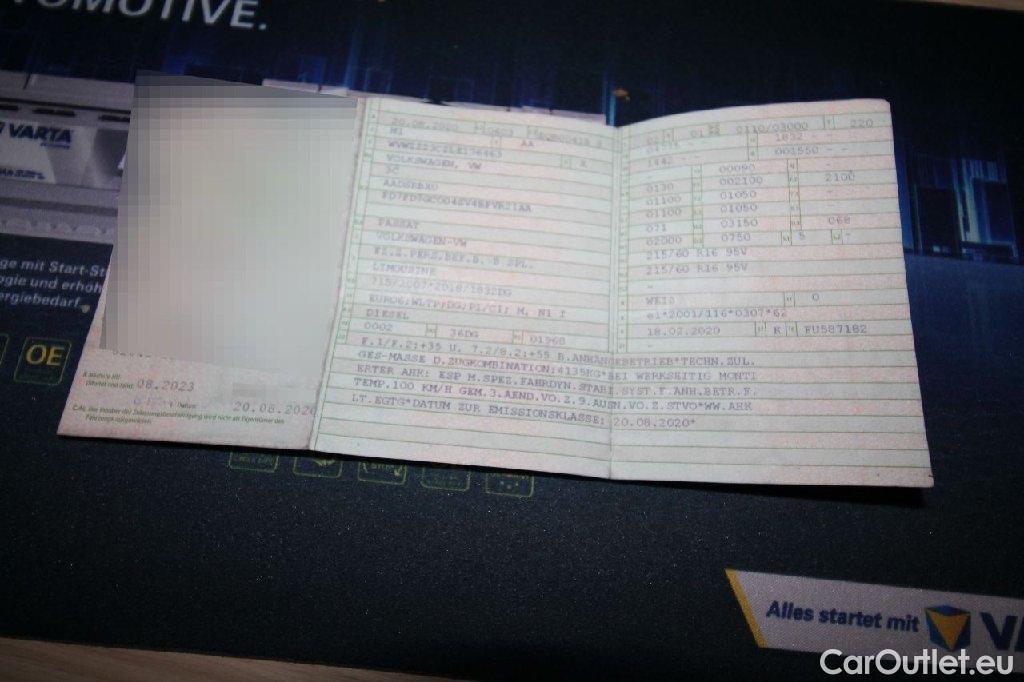 TOMOTIVE.
VARTA
ge mit Start-St
ogie und erhöh
ergiebedarf.
OE
08.2023
20.08.2020
20.08.2020
M1
AA
VOLKSWAGEN, VW
3C
AADSRBX0
PASSAT
VOLKSWAGEN-VW
FZ.Z.PERS.BEF.B. 8 SPL.
LIMOUSINE
715/2007*2018/1832DG
EURO6;WLTP;DG;PI/CI; M, N1 I
DIESEL
0002 36DG 01968
01 0110/03000 220
1832 - -
1442 001550 - -
00090 -
0130 002100 2100
01100 01050 - -
01100 01050 - -
071 03150 068
02000 0750 5 -
215/60 R16 95V
215/60 R16 95V
-
WEIß 0
e1*2001/116*0307*62
18.02.2020 K FU587182
F.1/F.2:+35 U. 7.2/8.2:+55 B.ANHÄNGEBETRIEB*TECHN.ZUL.
GES-MASSE D.ZUGKOMBINATION:4135KG*BEI WERKSEITIG MONTI
ERTER AHK: ESP M.SPEZ.FAHRDYN.STABI.SYST.F.ANH.BETR.F.
TEMP.100 KM/H GEM.3.AEND.VO.Z.9.AUSN.VO.Z.STVO*WW.AHK
LT.EGTG*DATUM ZUR EMISSIONSKLASSE: 20.08.2020*
Alles startet mit VA
CarOutlet.eu